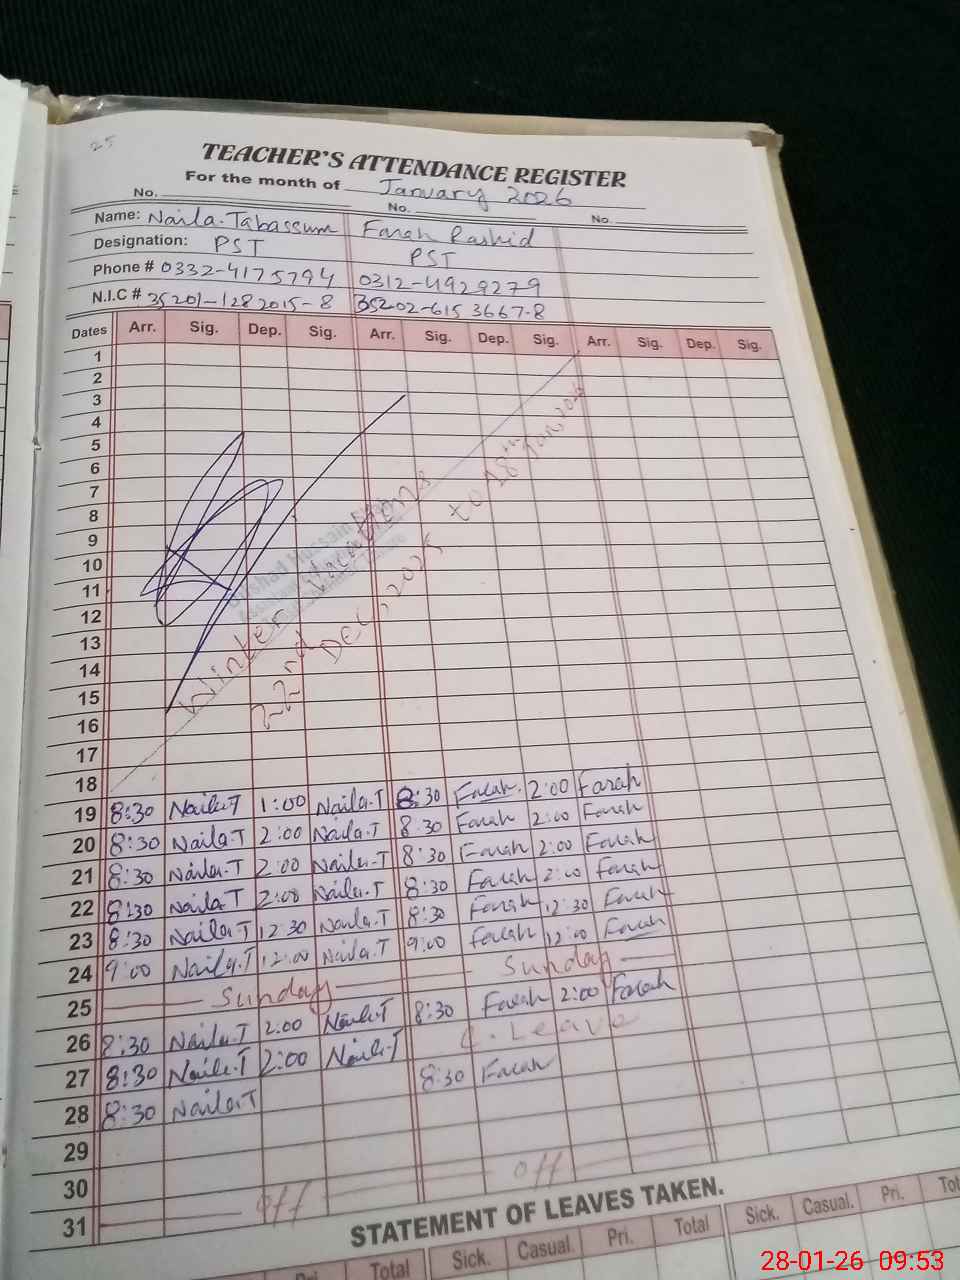 25
TEACHER'S ATTENDANCE REGISTER
For the month of January 2026
No. No. No.
Name: Naila.Tabassum Farah Rashid
Designation: PST PST
Phone # 0332-4175794 0312-4929279
N.I.C # 35201-1282015-8 35202-6153667-8
Dates Arr. Sig. Dep. Sig. Arr. Sig. Dep. Sig. Arr. Sig. Dep. Sig.
1
2
3
4
5
6
7
8
9
10
11
12
13
14
15
16
17
18
Winter Vacations
22nd DEC, 2025 to 18th Jan, 2026
19 8:30 Naila.T 1:00 Naila.T 8:30 Farah. 2:00 Farah
20 8:30 Naila.T 2:00 Naila.T 8:30 Farah 2:00 Farah
21 8:30 Naila.T 2:00 Naila.T 8:30 Farah 2:00 Farah
22 8:30 Naila.T 2:00 Naila.T 8:30 Farah 2:00 Farah
23 8:30 Naila.T 12:30 Naila.T 8:30 Farah 12:30 Farah
24 9:00 Naila.T 12:00 Naila.T 9:00 Farah 12:00 Farah
25 Sunday Sunday
26 8:30 Naila.T 2:00 Naila.T 8:30 Farah 2:00 Farah
27 8:30 Naila.T 2:00 Naila.T C. Leave
28 8:30 Naila.T 8:30 Farah
29
30
31 off off
STATEMENT OF LEAVES TAKEN.
Pri. Total Sick. Casual. Pri. Total Sick. Casual. Pri.
28-01-26 09:53